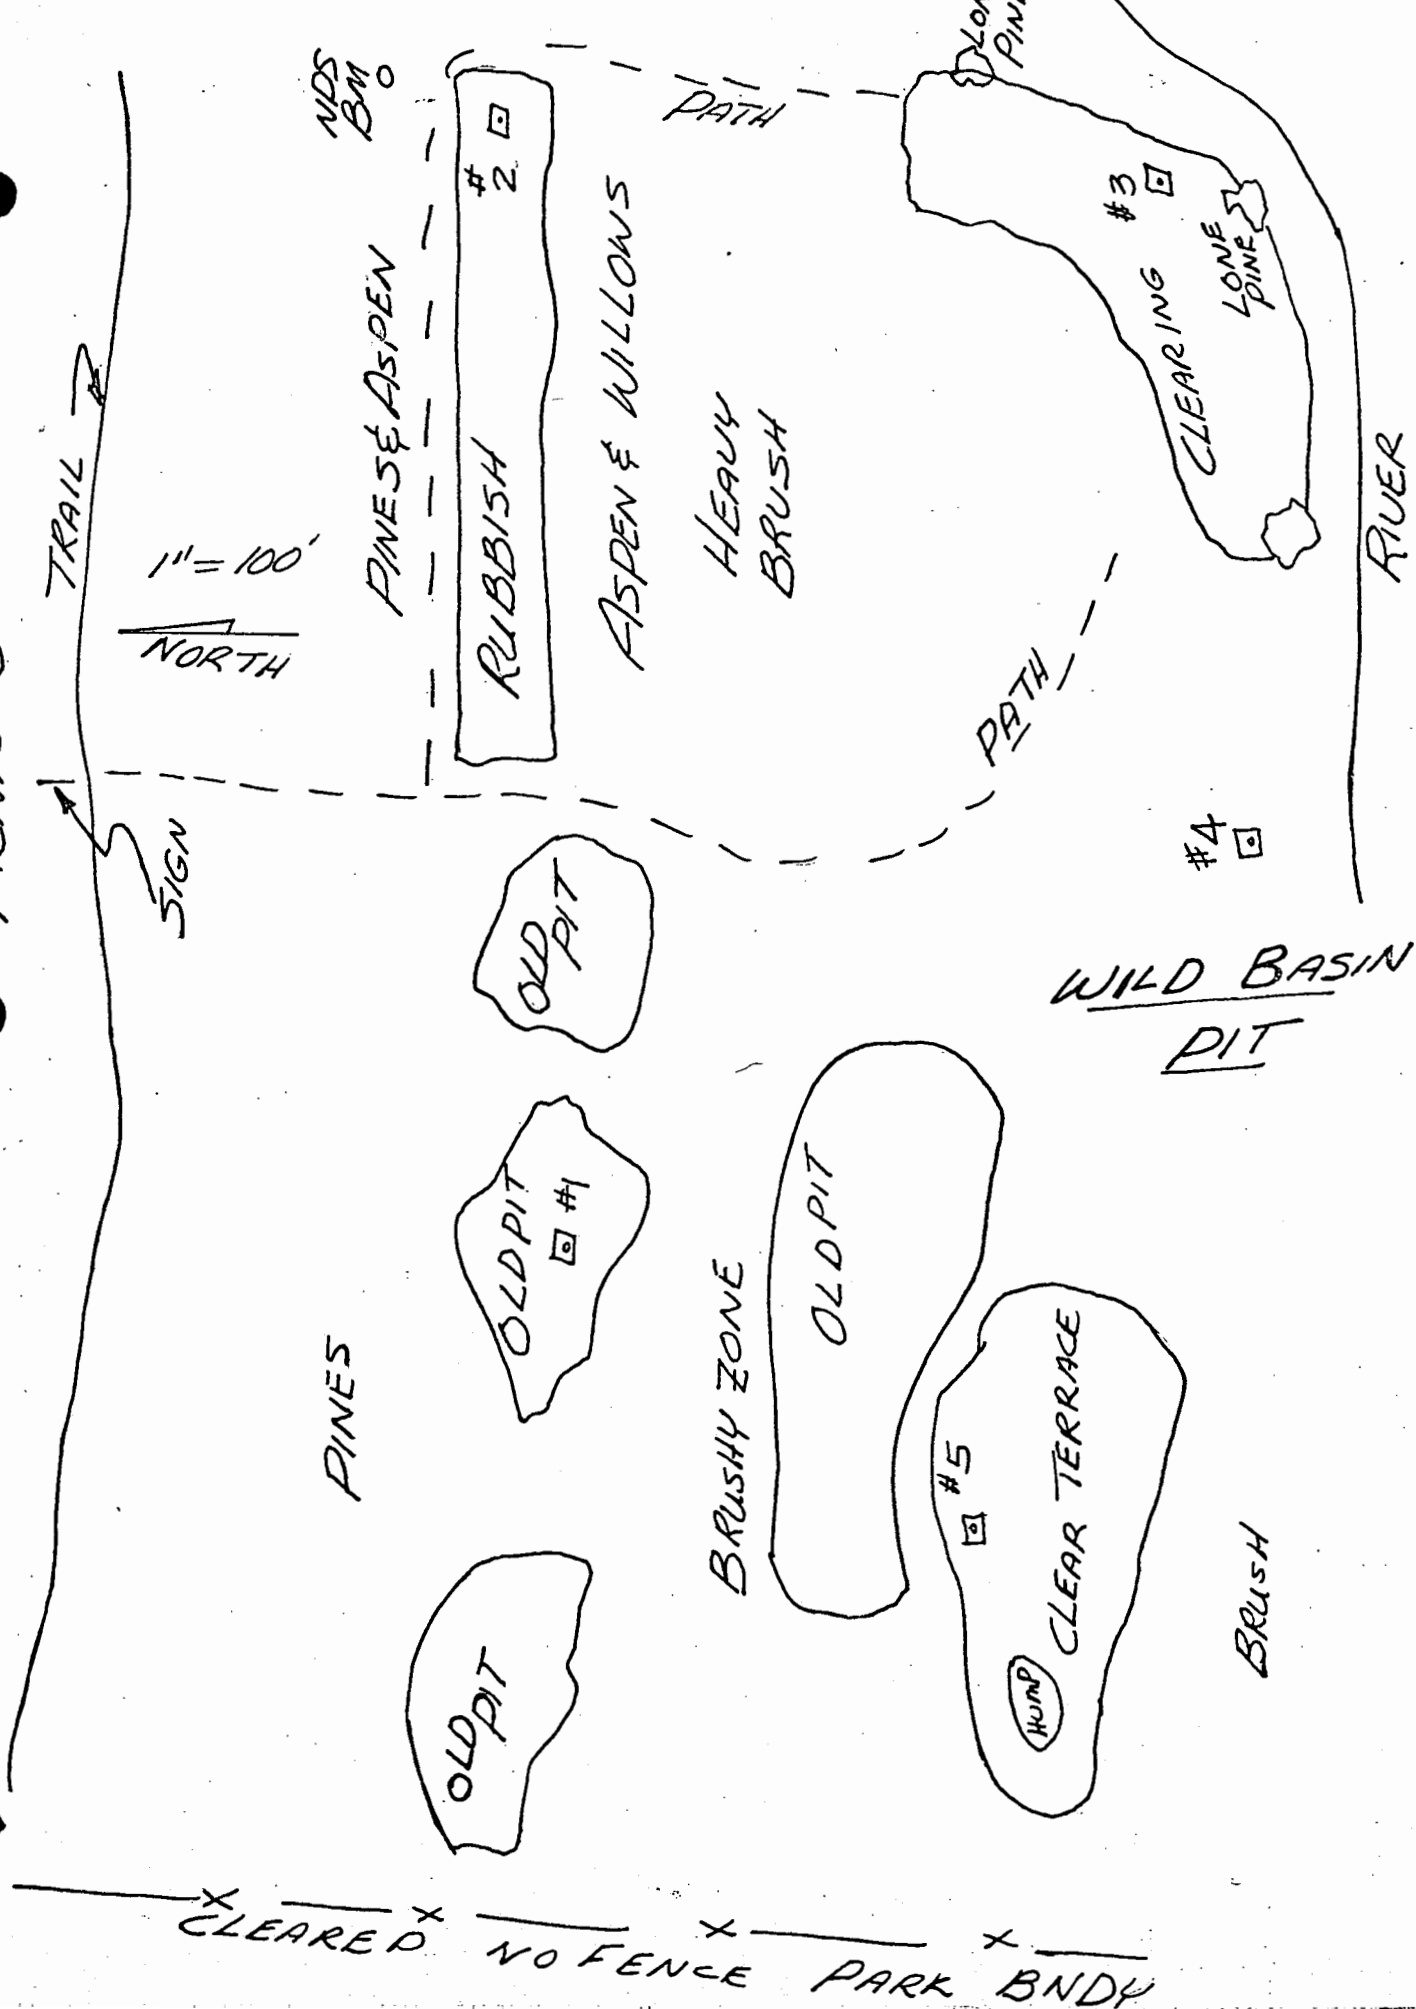 TRAIL
1" = 100'
NORTH
SIGN
NPS
BM
PINES & ASPEN
#
2
RUBBISH
ASPEN & WILLOWS
PATH
HEAVY
BRUSH
LONE
PINE
#3
CLEARING
RIVER
PATH
#4
WILD BASIN
PIT
OLD
PIT
OLD PIT
#1
PINES
OLD
PIT
BRUSHY ZONE
OLD PIT
#5
CLEAR TERRACE
HUMP
BRUSH
CLEARED NO FENCE PARK BNDY